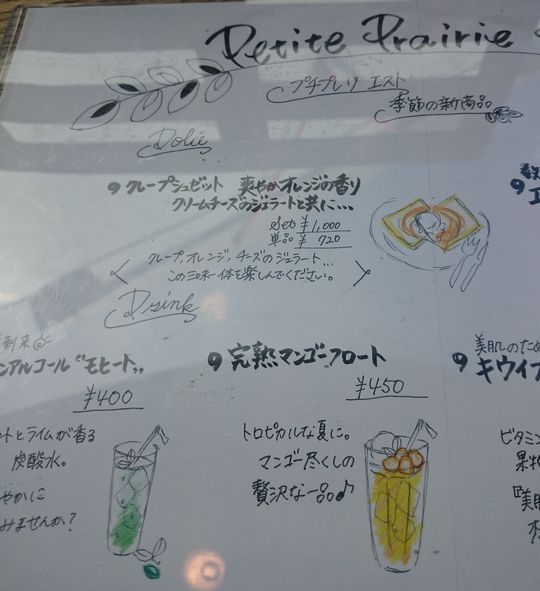 Petite Prairie
プチプレリ エスト
季節の新商品
Dolce
クレープシュゼット 爽やかオレンジの香り
クリームチーズのジェラートと共に…
Set ¥1,000
単品 ¥720
クレープ、オレンジ、チーズのジェラート…
この三位一体を楽しんでください。
Drink
到来
ンアルコール"モヒート"
¥400
ートとライムが香る
炭酸水。
やかに
みませんか?
完熟マンゴーフロート
¥450
トロピカルな夏に。
マンゴー尽くしの
贅沢な一品♪
美肌のため
キウイフ
ビタミン
果物
『美肌